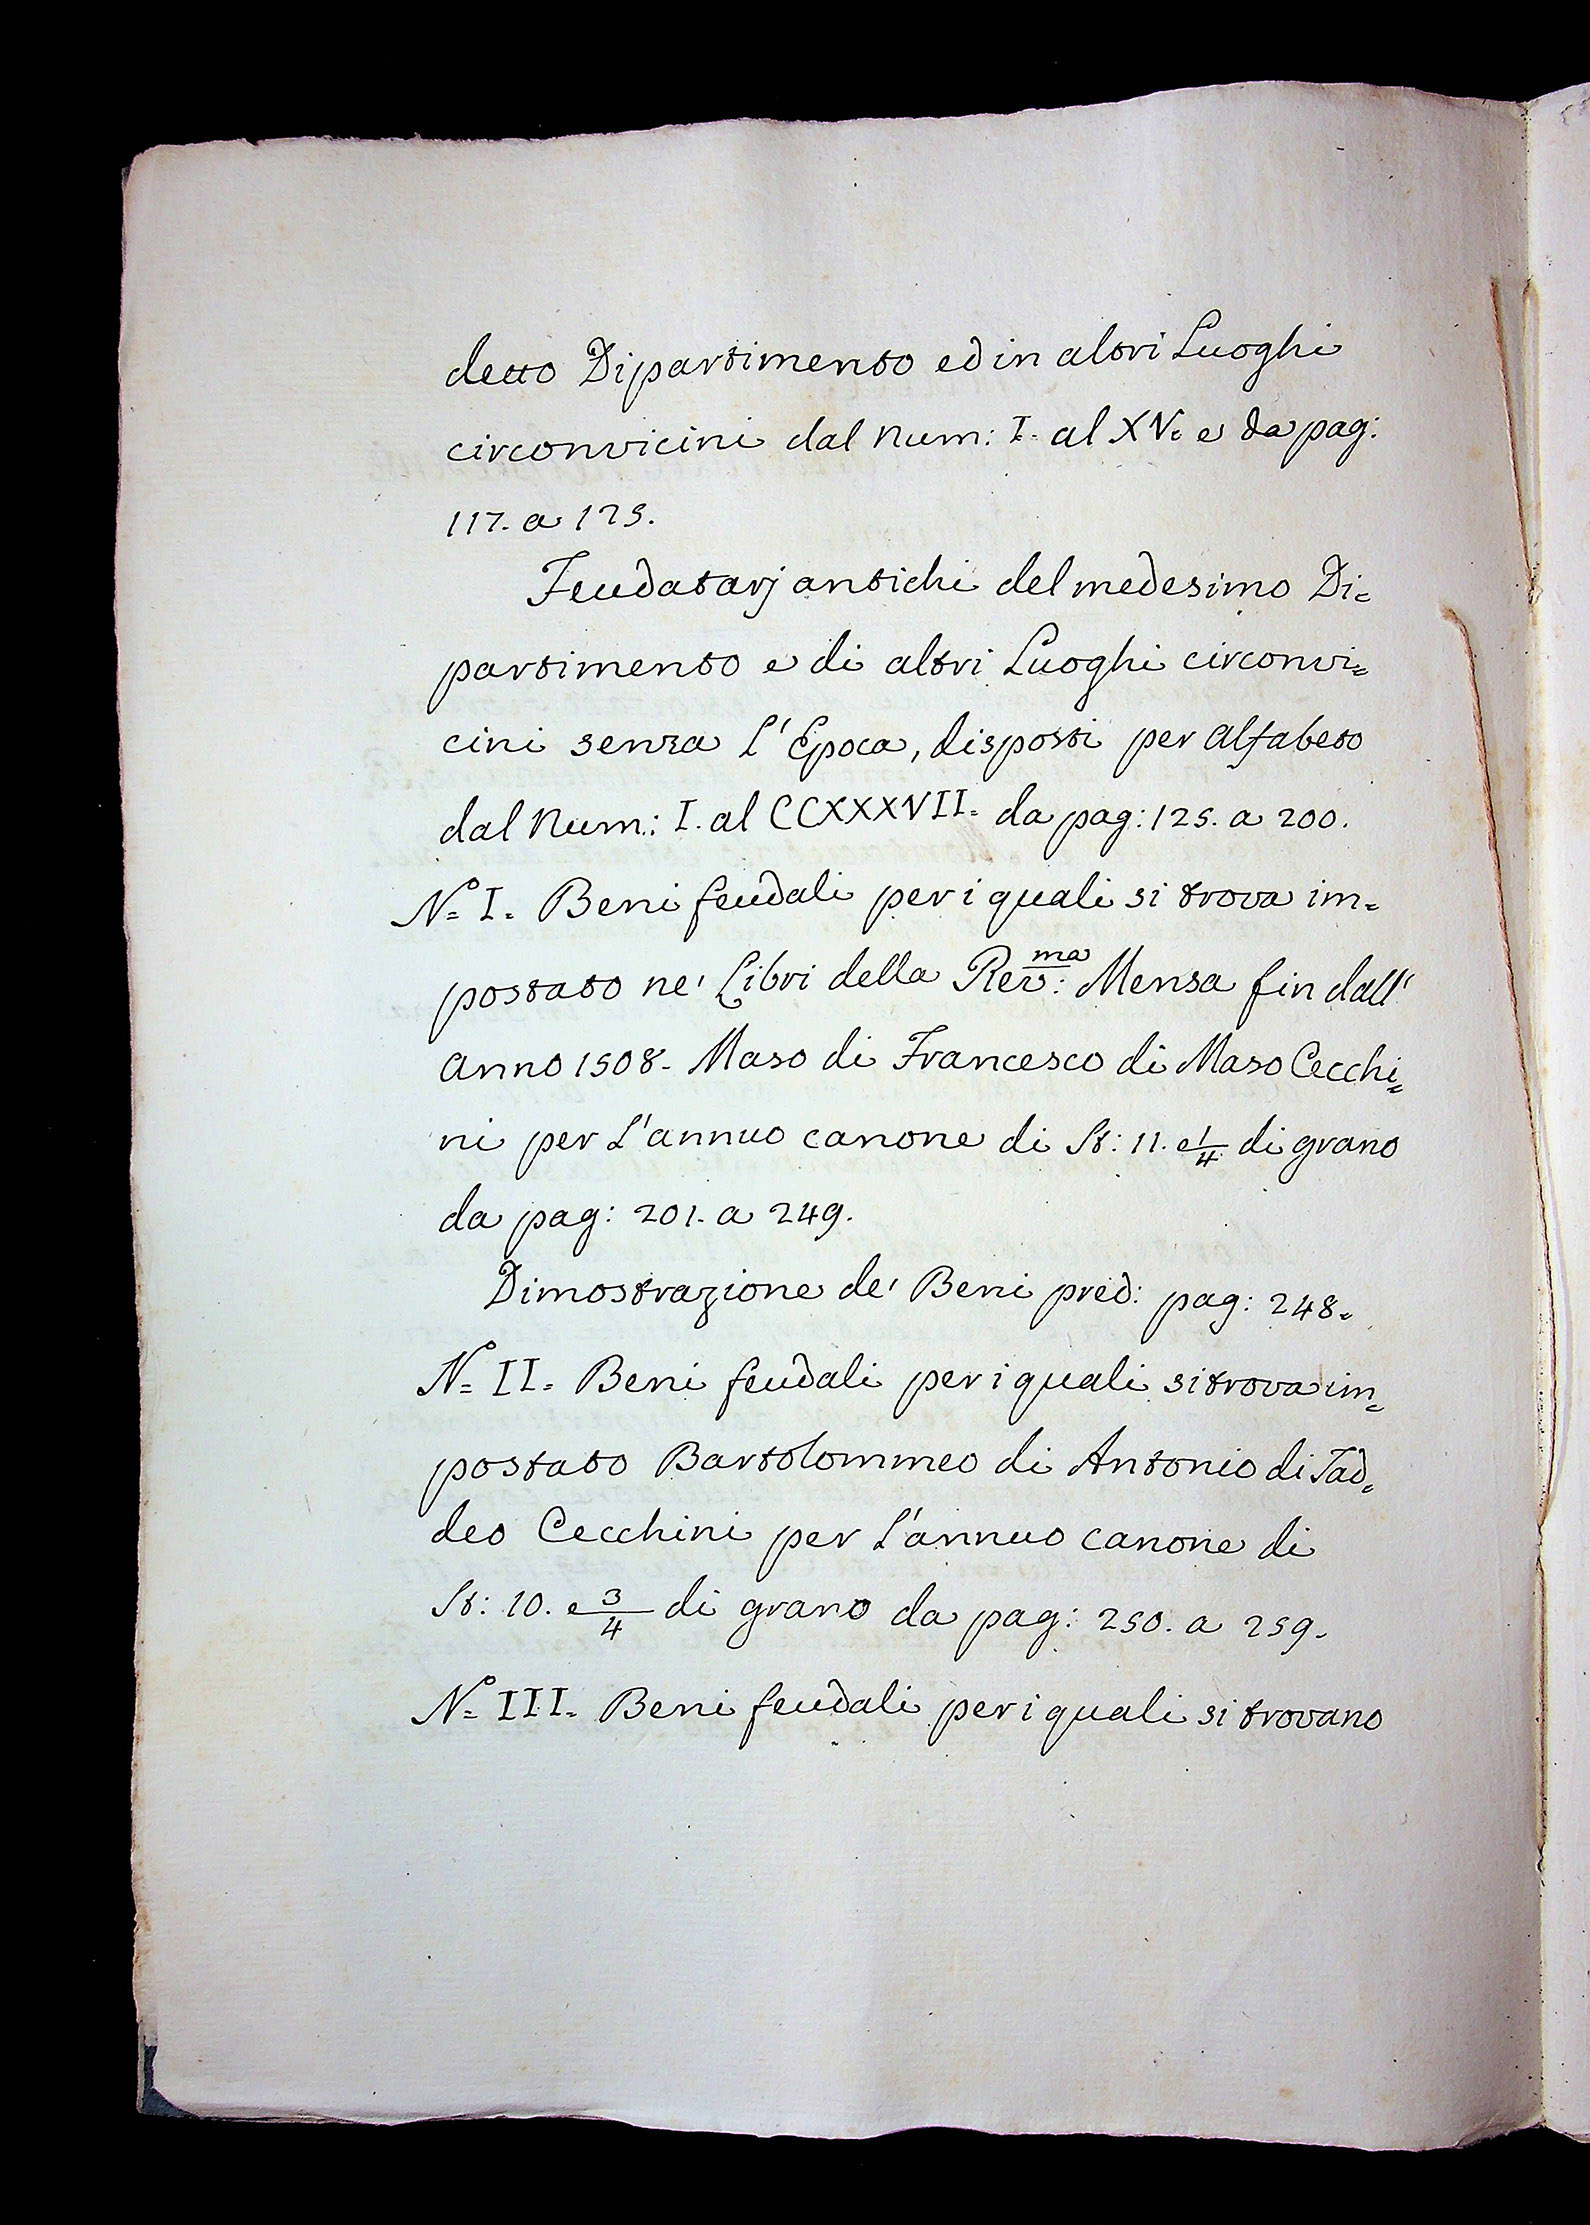 detto Dipartimento ed in altri Luoghi
circonvicini dal Num: I. al XV. e da pag:
117. a 125.
Feudatarj antichi del medesimo Di=
partimento e di altri Luoghi circonvi=
cini senza l'Epoca, disposti per Alfabeto
dal Num: I. al CCXXXVII. da pag: 125. a 200.
N.º I. Beni feudali per i quali si trova im=
postato ne' Libri della Rev:ma Mensa fin dall'
Anno 1508. Maso di Francesco di Maso Cecchi=
ni per l'annuo canone di St: 11. e 1/4 di grano
da pag: 201. a 249.
Dimostrazione de' Beni pred: pag: 248.
N.º II. Beni feudali per i quali si trova im=
postato Bartolommeo di Antonio di Tad=
deo Cecchini per l'annuo canone di
St: 10. e 3/4 di grano da pag: 250. a 259.
N.º III. Beni feudali per i quali si trovano